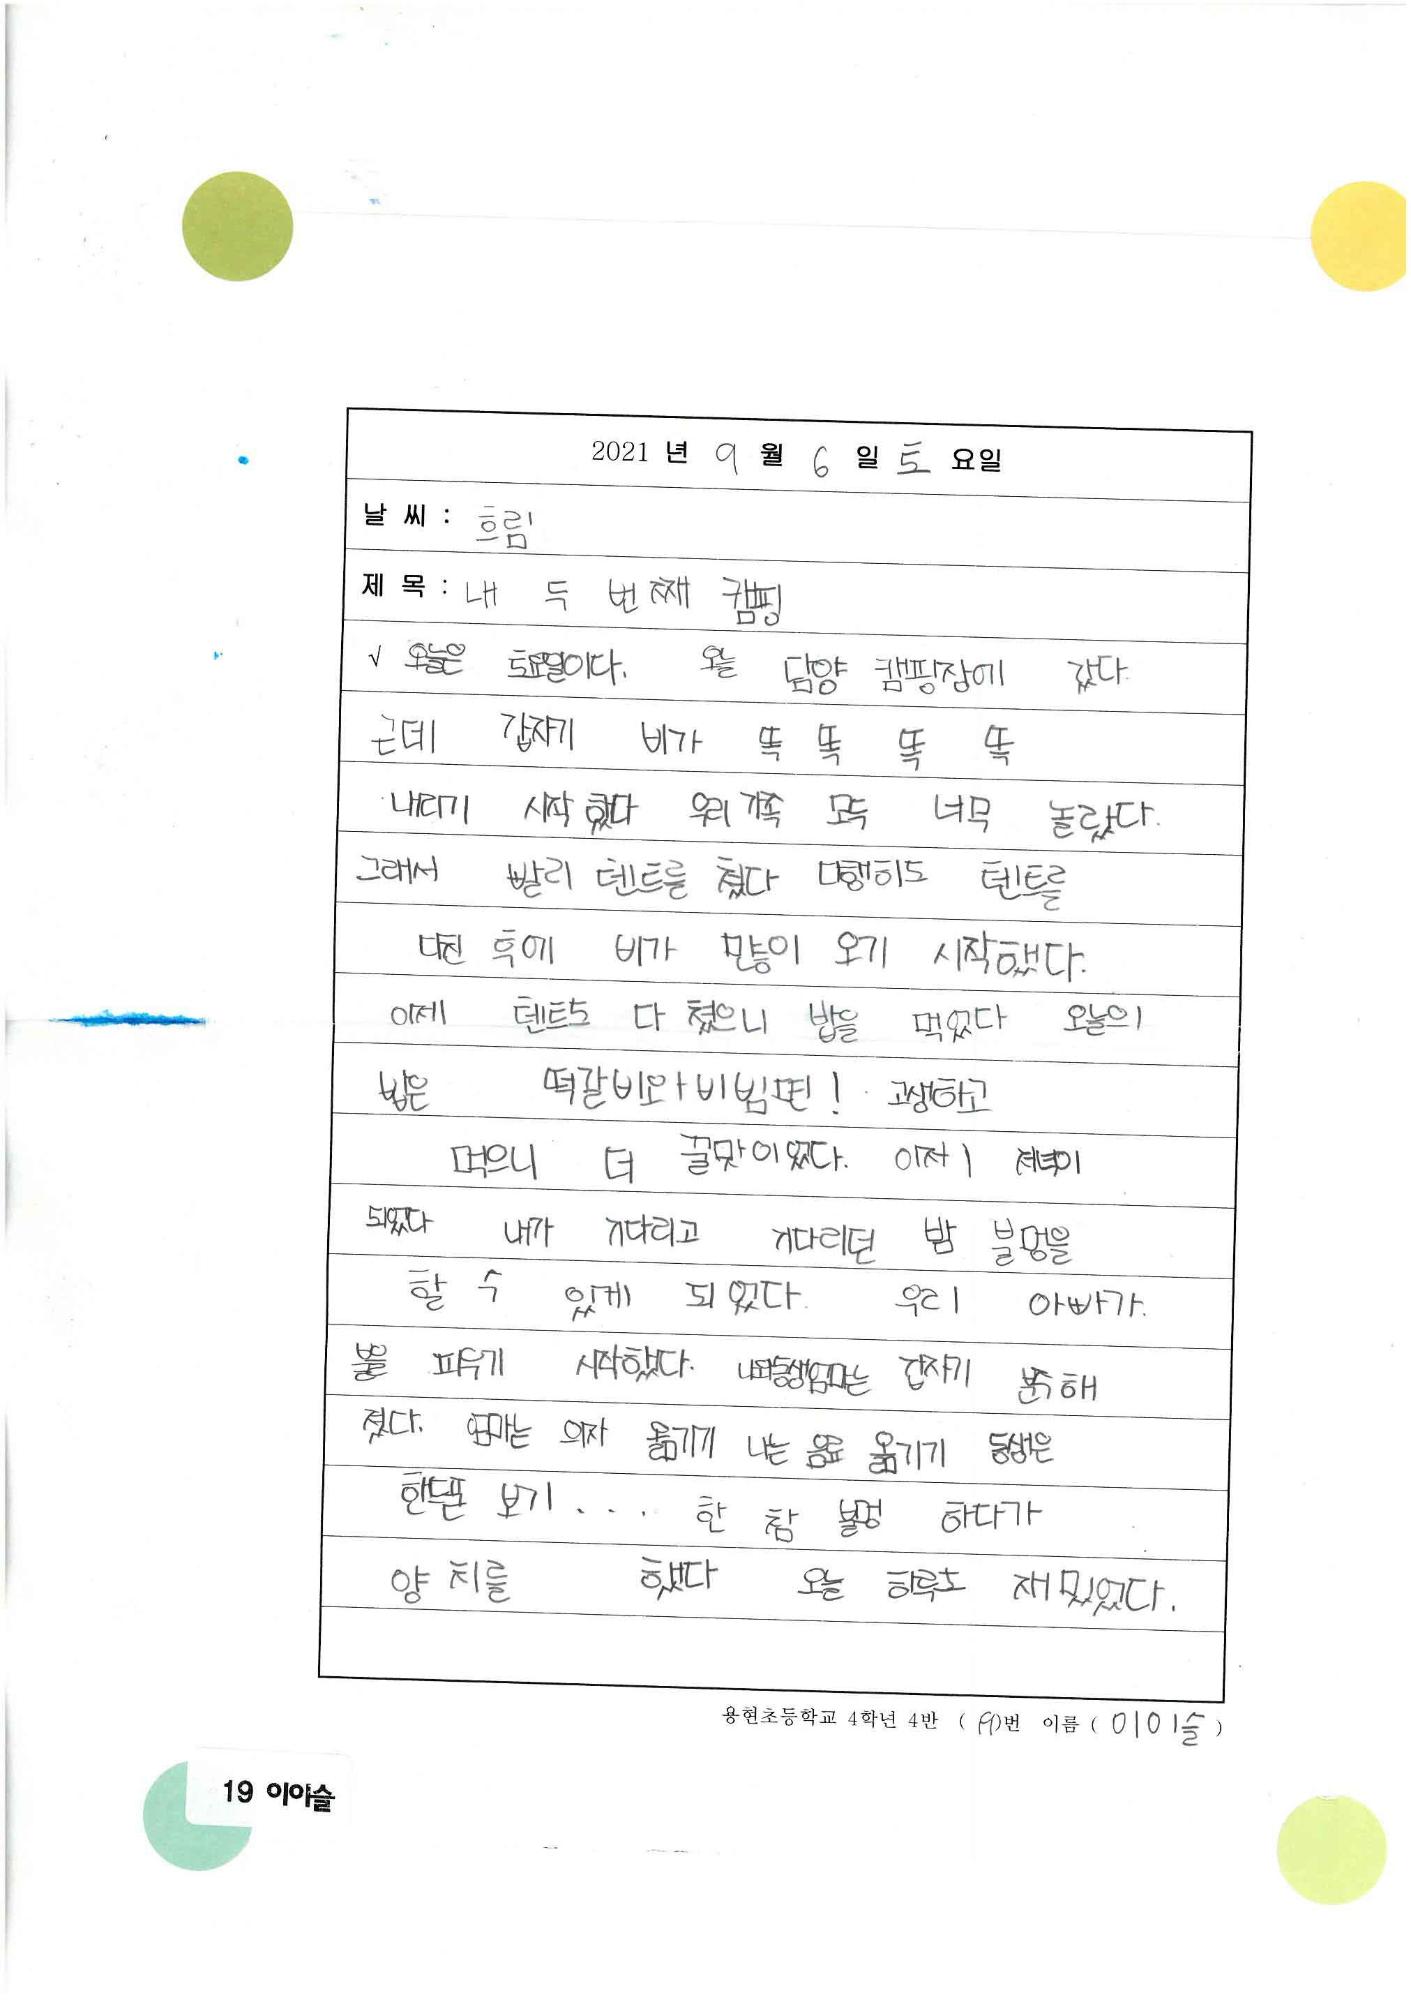 2021 년 9 월 6 일 토 요일
날 씨 : 흐림
제 목 : 내 두 번째 캠핑
√ 오늘은 토요일이다. 오늘 담양 캠핑장에 갔다.
근데 갑자기 비가 똑 똑 똑 똑
내리기 시작했다 우리 가족 모두 너무 놀랐다.
그래서 빨리 텐트를 쳤다 다행히도 텐트를
다친 후에 비가 많이 오기 시작했다.
이제 텐트도 다 쳤으니 밥을 먹었다 오늘의
밥은 떡갈비와 비빔면! 고생하고
먹으니 더 꿀맛이었다. 이제 저녁이
되었다 내가 기다리고 기다리던 밤 불멍을
할 수 있게 되었다. 우리 아빠가.
불을 피우기 시작했다. 나와동생엄마는 갑자기 분주해
졌다. 엄마는 의자 옮기기 나는 음료 옮기기 동생은
핸드폰 보기 . . . . 한 참 불멍 하다가
양치를 했다 오늘 하루도 재밌었다.
용현초등학교 4학년 4반 ( 19 )번 이름 ( 이이슬 )
19 이아슬